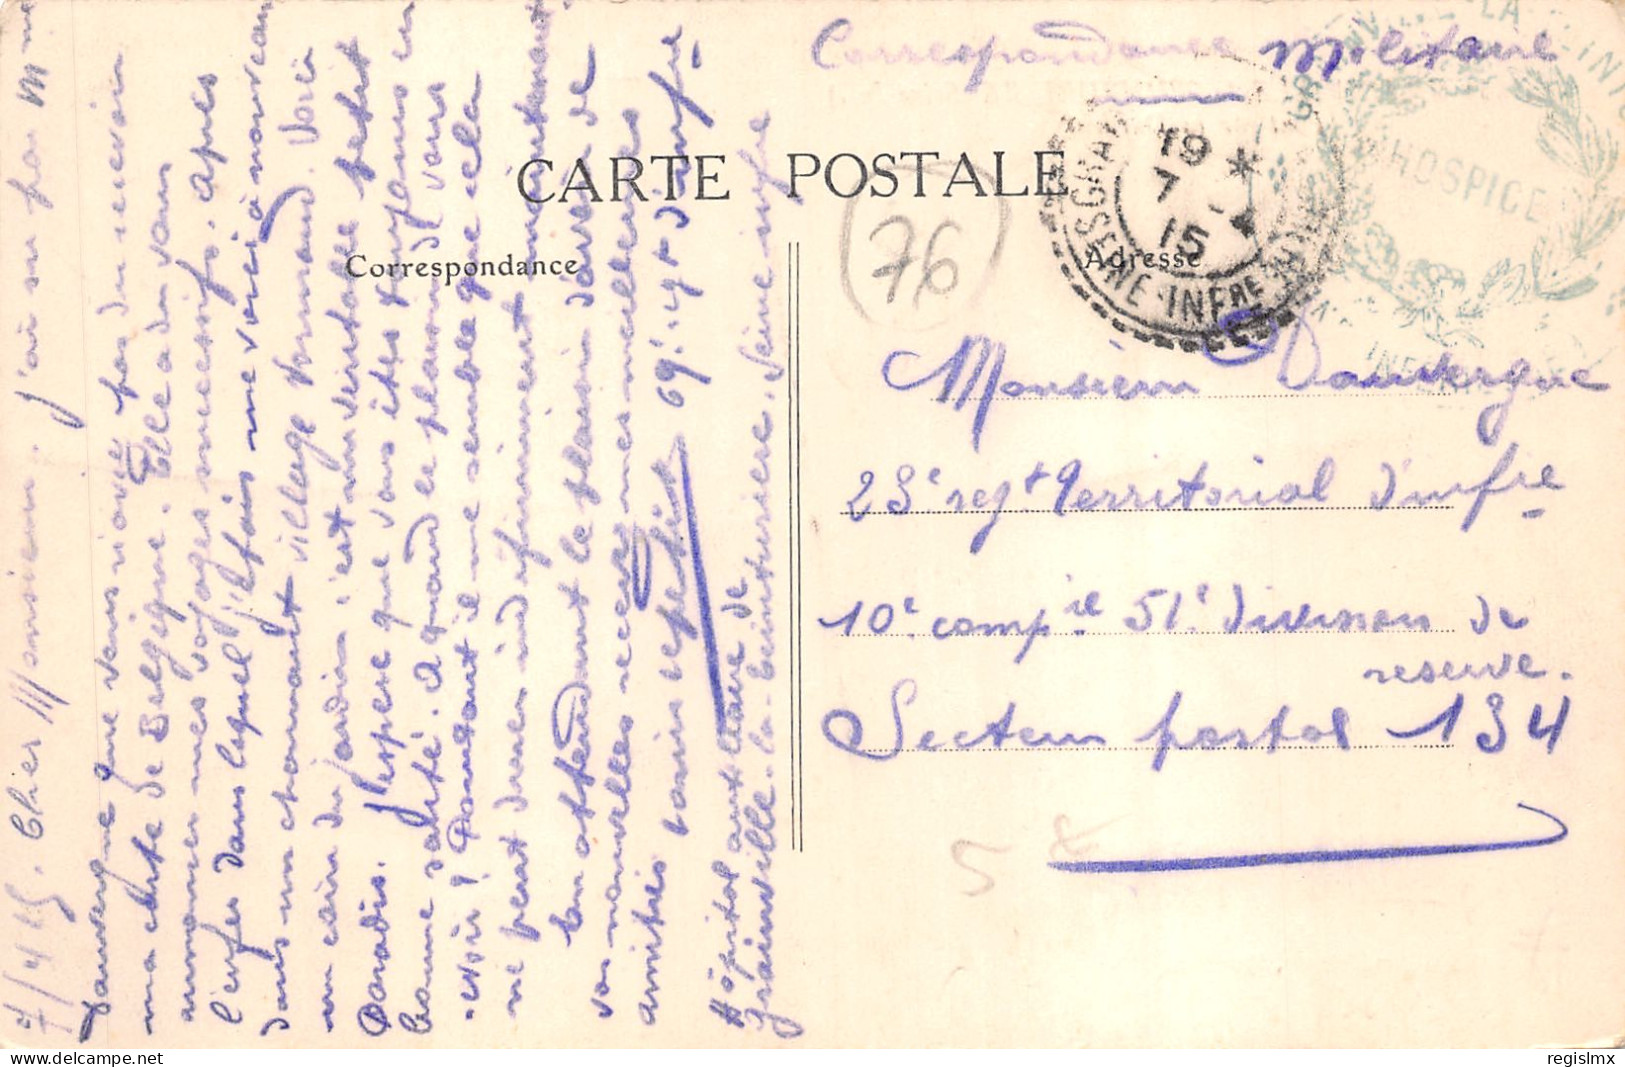 Correspondance Militaire
CARTE POSTALE
Correspondance
Adresse
76
19
7
15
SEINE INFRE
HOSPICE
7/4 15. Cher Monsieur. j'ai su par Mme
Dauvergne que vous n'avez pas du recevoir
ma carte de Belgique. Elle a du vous
annoncer mes voyages successifs. Après
l'enfer dans lequel j'étais me voici à nouveau
dans un charmant village Normand. Voici
un coin du jardin c'est un véritable petit
Paradis. J'espère que vous êtes toujours en
bonne santé. A quand le plaisir de vous
revoir ? Pourtant il me semble que cela
ne peut durer indéfiniment maintenant.
En attendant le plaisir d'avoir de
vos nouvelles recevez mes meilleures
amitiés
69e. r.gt d'infie
Hôpital auxiliaire de
Grainville-la-Teinturière. Seine infre
Monsieur Dauvergne
23e regt Territorial d'infie
10e. compie 51e. division de
reserve.
Secteur postal 134
5
regislmx